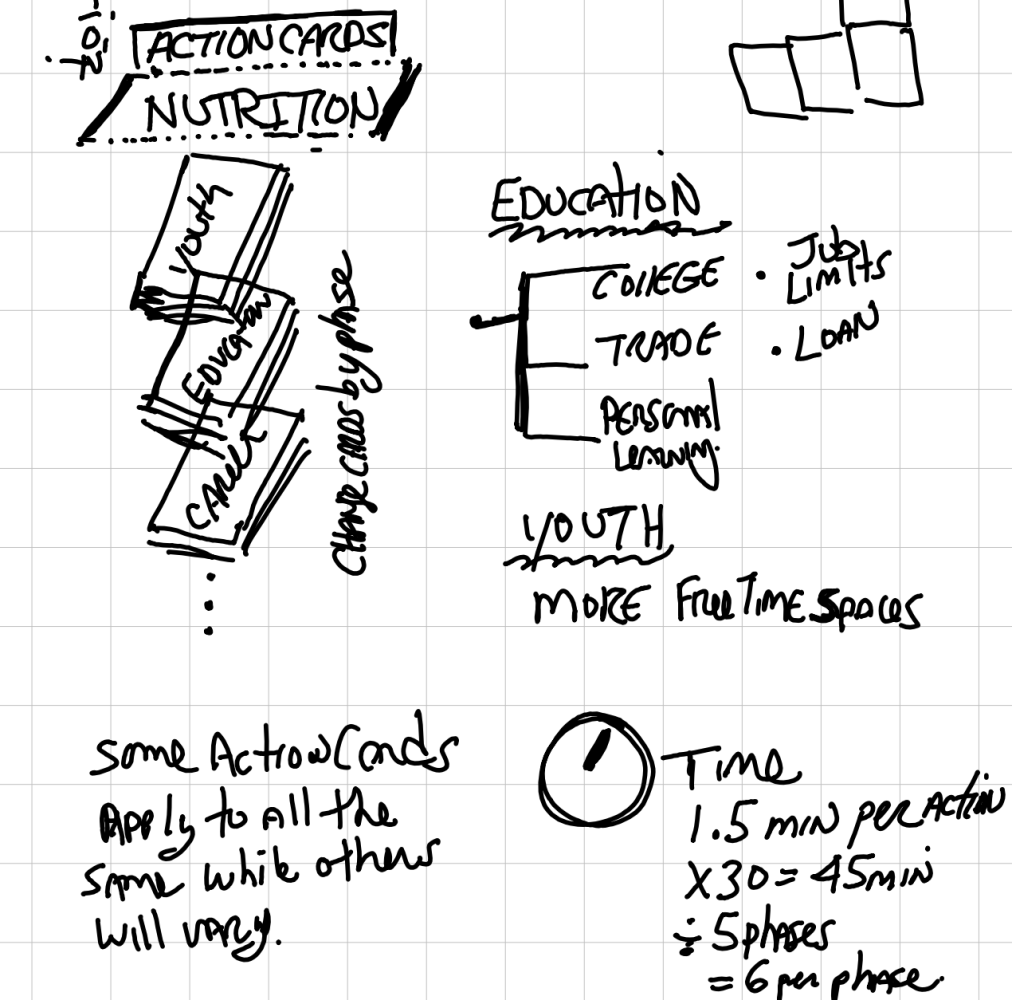 ACTION CARDS
NUTRITION
YOUTH
EDUCATION
CAREER
CHANGE CARDS by phase
EDUCATION
COllEGE • Job
LIMITS
TRADE • LOAN
PERSONAl
LEARNING
YOUTH
MORE FREE TIME SPACES
Some Action Cards
Apply to All the
Same while others
will vary.
TIME
1.5 MIN per ACTION
X30 = 45 MIN
÷ 5 phases
= 6 per phase